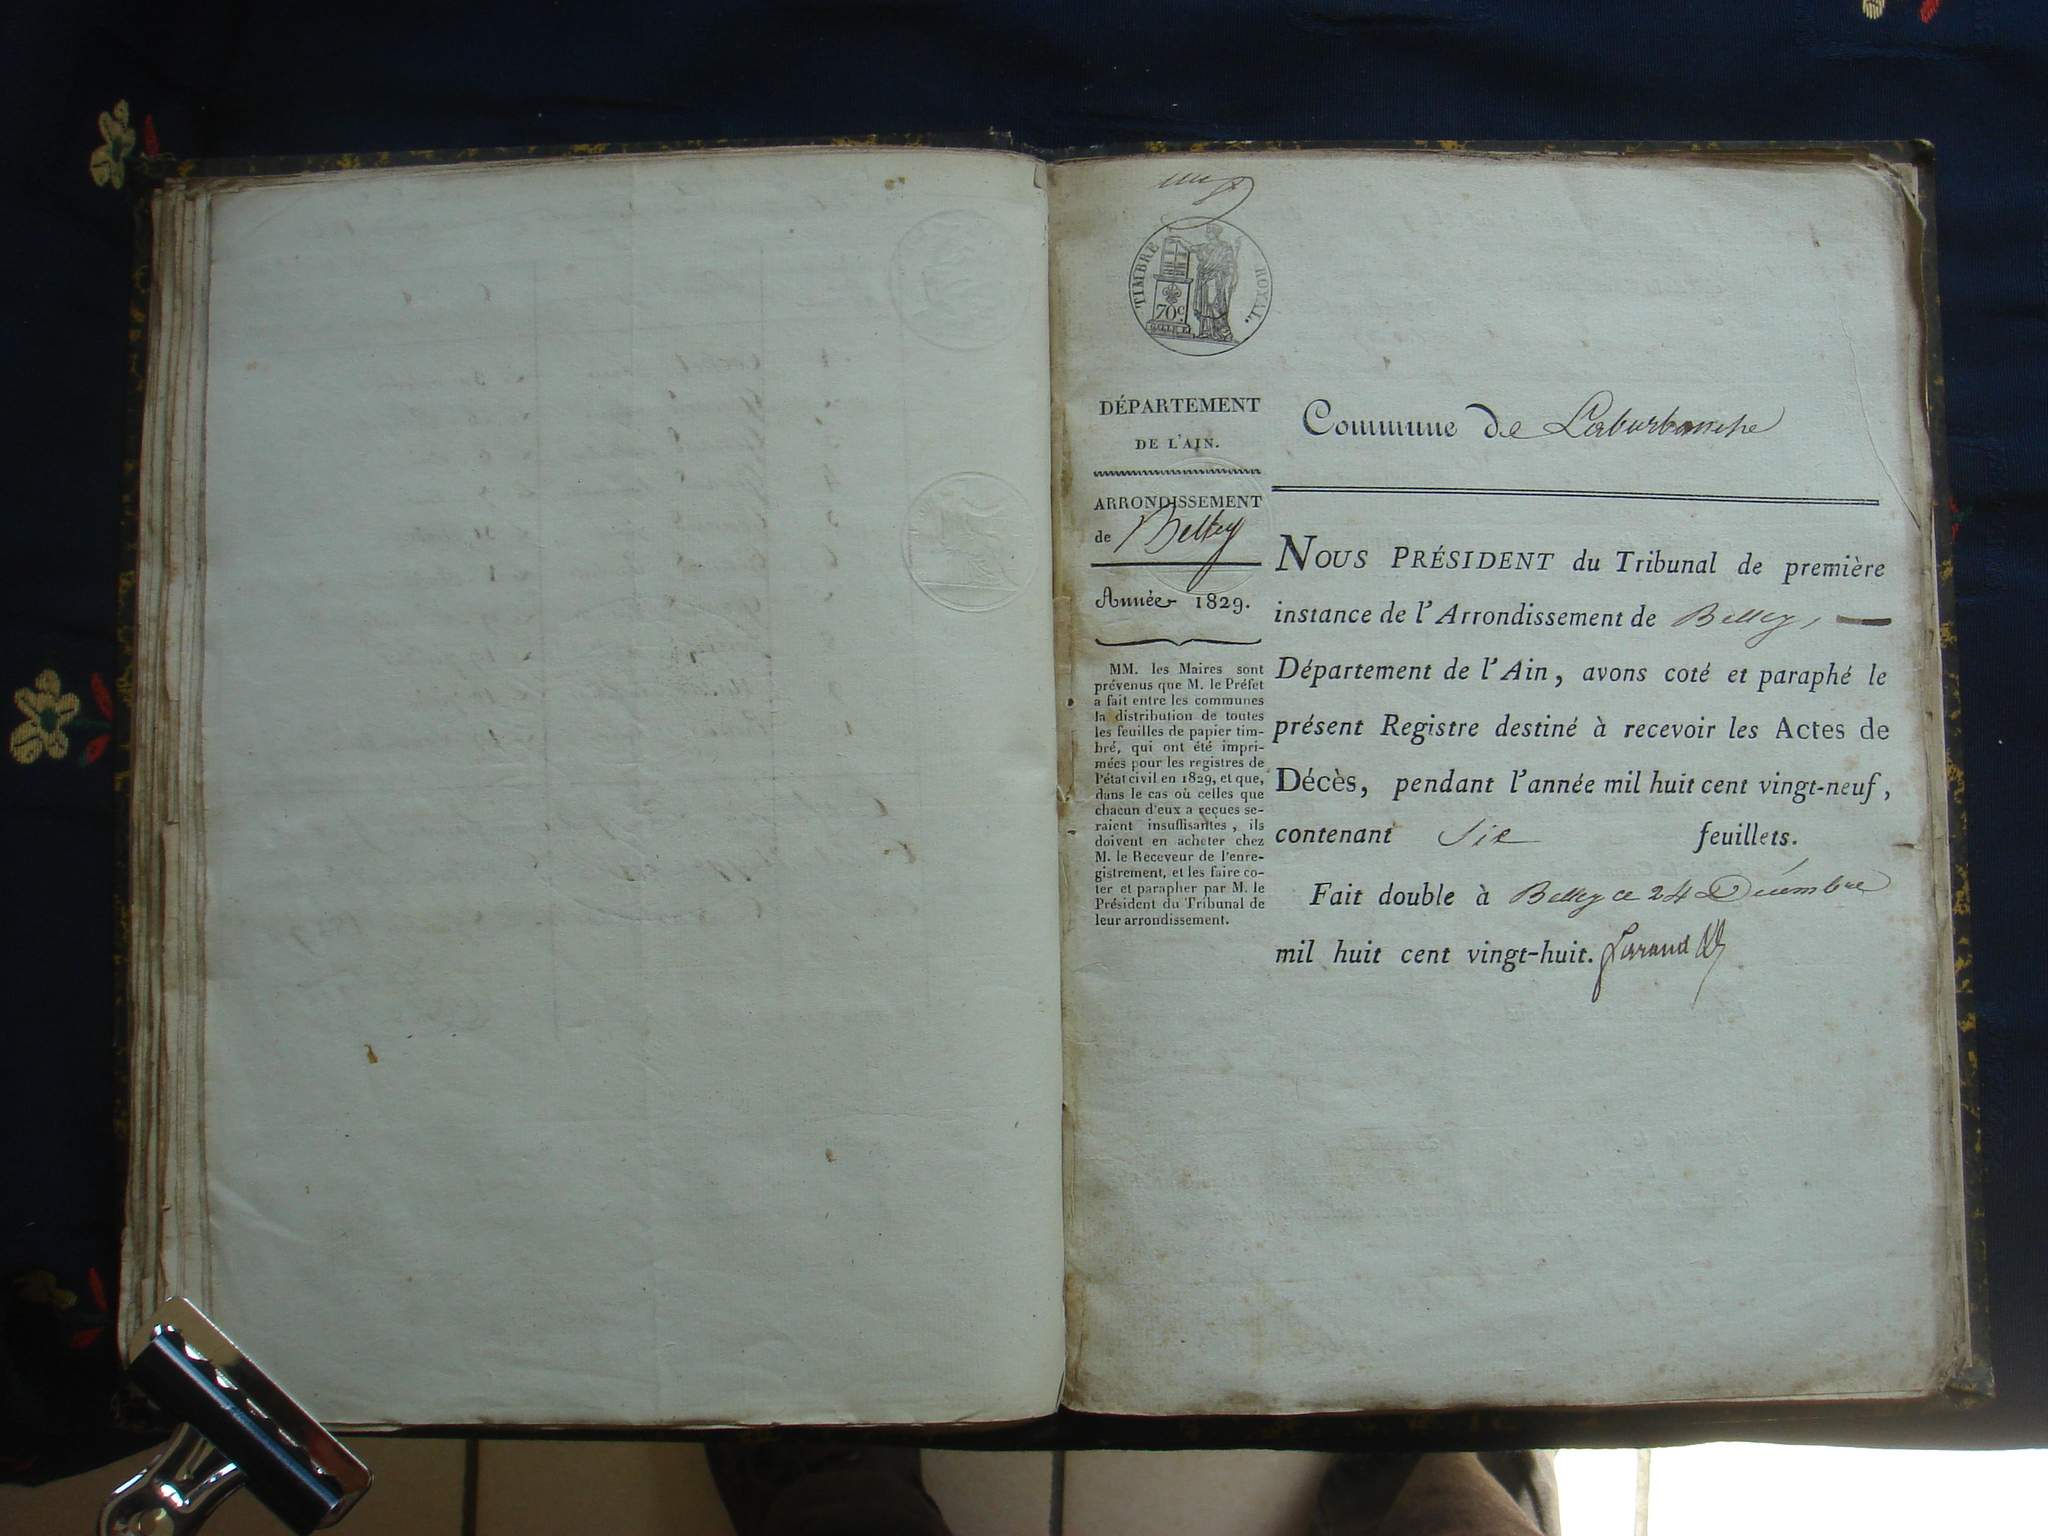 TIMBRE ROYAL.
70 c.
DÉPARTEMENT
DE L'AIN.
ARRONDISSEMENT
de Belley
Année 1829.
MM. les Maires sont
prévenus que M. le Préfet
a fait entre les communes
la distribution de toutes
les feuilles de papier tim-
bré, qui ont été impri-
mées pour les registres de
l'état civil en 1829, et que,
dans le cas où celles que
chacun d'eux a reçues se-
raient insuffisantes, ils
doivent en acheter chez
M. le Receveur de l'enre-
gistrement, et les faire co-
ter et parapher par M. le
Président du Tribunal de
leur arrondissement.
Commune de Laburbanche
NOUS PRÉSIDENT du Tribunal de première
instance de l'Arrondissement de Belley,
Département de l'Ain, avons coté et paraphé le
présent Registre destiné à recevoir les Actes de
Décès, pendant l'année mil huit cent vingt-neuf,
contenant Six feuillets.
Fait double à Belley ce 24 Décembre
mil huit cent vingt-huit.